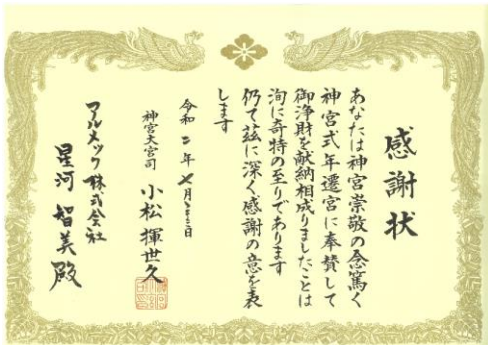 感謝状
あなたは神宮崇敬の念篤く
神宮式年遷宮に奉賛して
御浄財を献納相成りましたことは
洵に奇特の至りであります
仍て茲に深く感謝の意を表
します
令和二年七月 日
神宮大宮司 小松揮世久
マルメック株式会社
星河智美殿